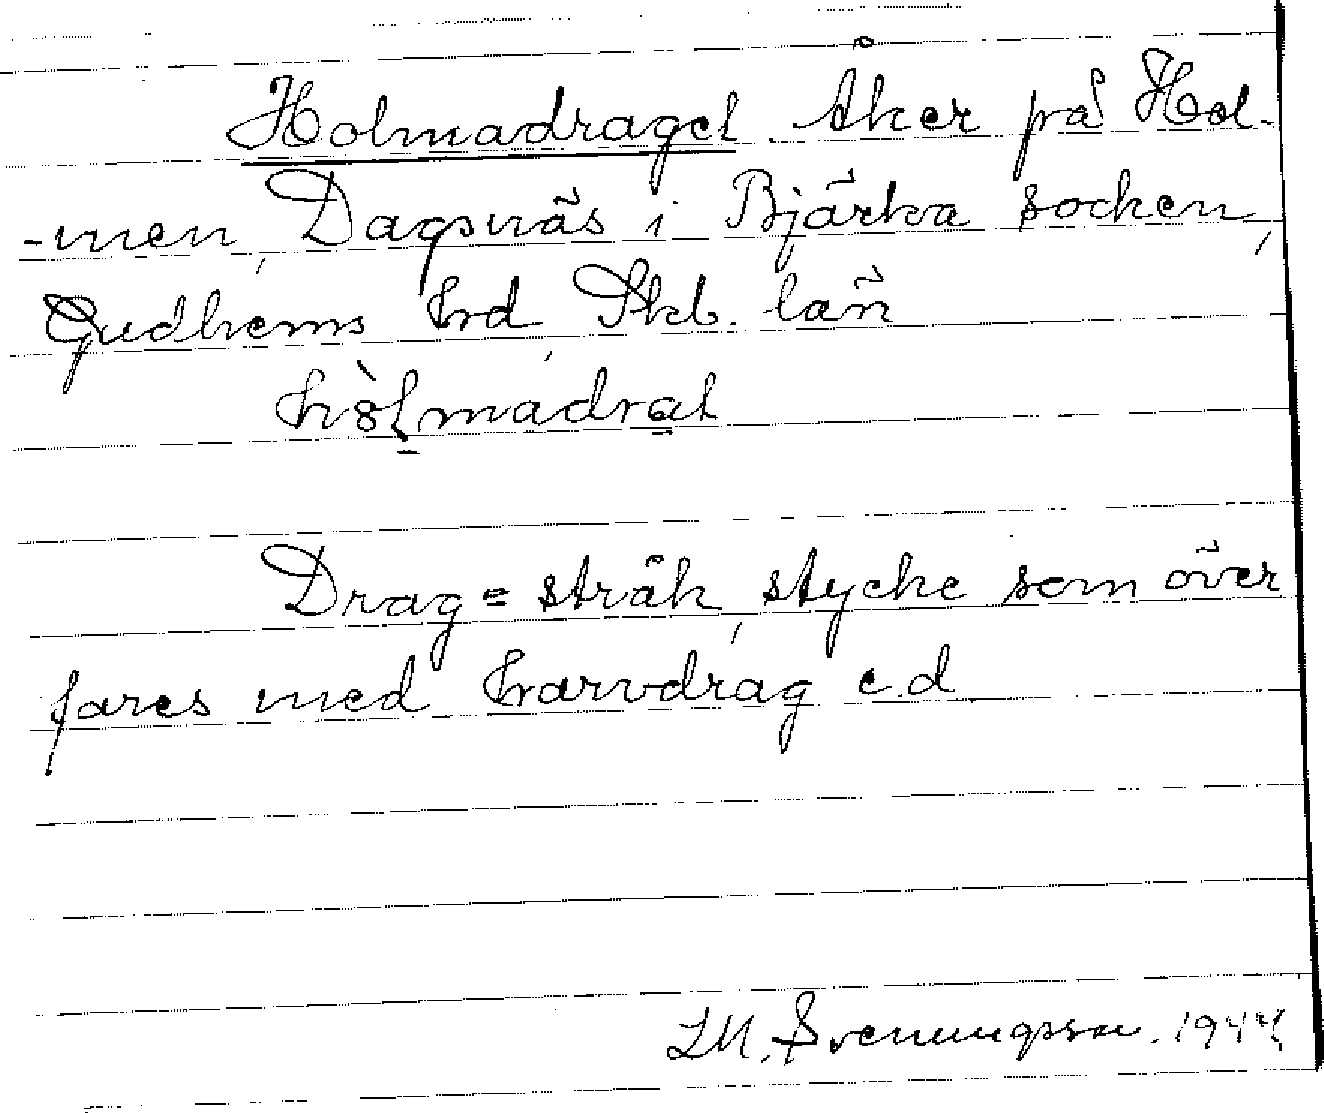 Holmadraget. Åker på Hol-
-men, Dagsnäs i Bjärka socken,
Gudhems hrd, Skb. län
Drag = stråk, stycke som över
fares med harvdrag e.d
Svenungsson. 1944